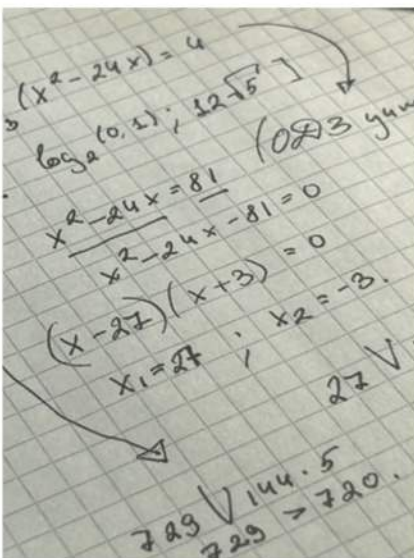 3 (x² - 24x) = 4
log₂(0,1) ; 12√5 ]
(ОДЗ
x² - 24x = 81
x² - 24x - 81 = 0
(x - 27)(x + 3) = 0
x₁ = 27 ; x₂ = -3.
27 V
729 V 144 · 5
729 > 720.